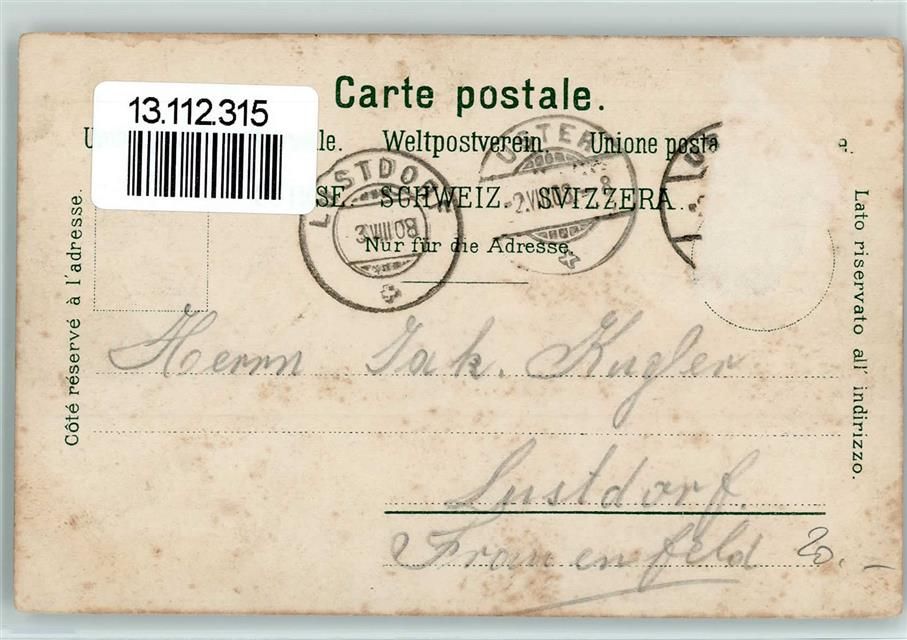 Carte postale.
13.112.315
Weltpostverein. Unione posta
SCHWEIZ. SVIZZERA.
Nur für die Adresse.
LUSTDORF
USTER
Côté réservé à l'adresse.
Lato riservato all' indirizzo.
Herrn Jak. Kugler
Lustdorf.
Frauenfeld
20.-